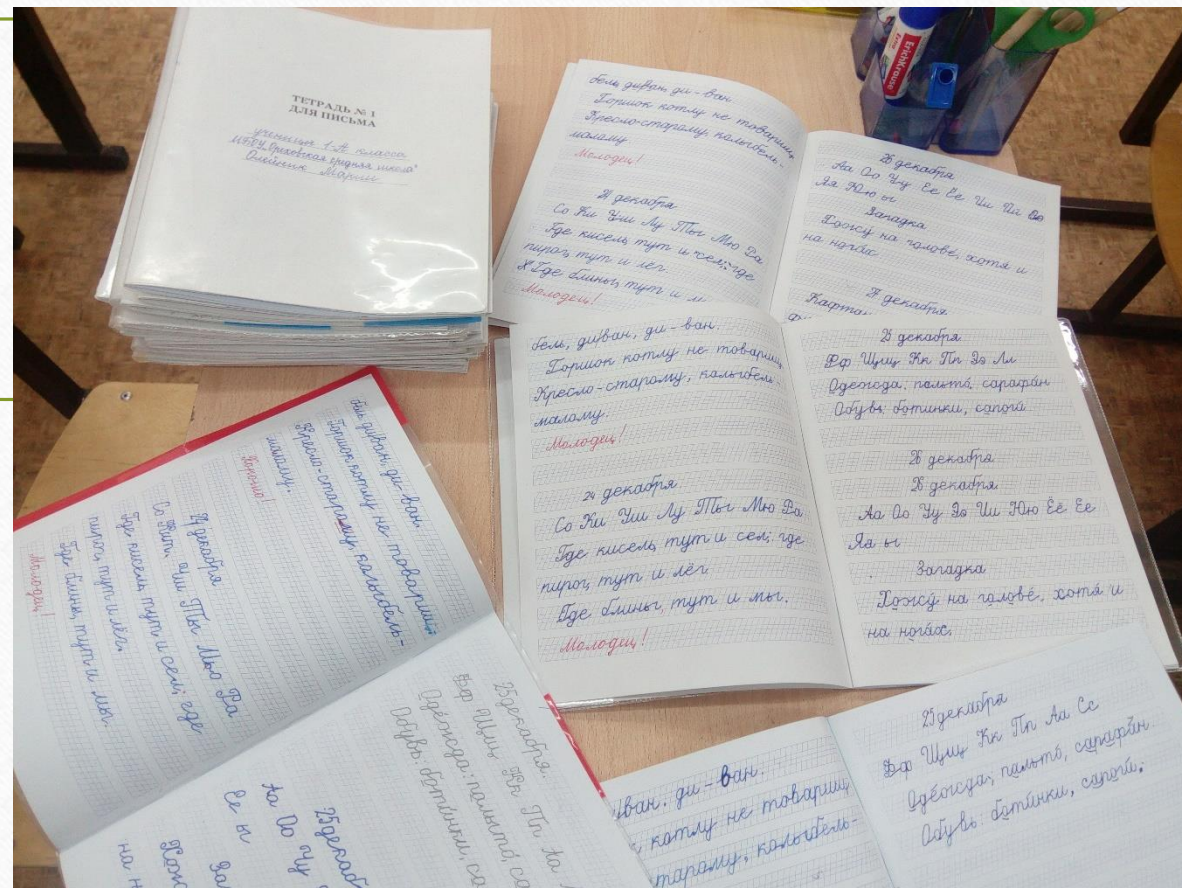 ТЕТРАДЬ № 1
ДЛЯ ПИСЬМА
ученицы 1-А класса
МБОУ "Ореховская средняя школа"
Олейник Марии
ErichKrause
бель, диван, ди-ван
Горшок котлу не товарищ
Кресло-старому, колыбель-
малому
Молодец!
24 декабря
Со Жи Чи Лу Ты Мю Ра
Где кисель, тут и сел; где
пирог, тут и лёг
Где блины, тут и м
Молодец!
26 декабря
Аа Оо Уу Ее Ёё Ии Йй Ээ
Яя Юю ы
Загадка
Хожу́ на голове́, хотя́ и
на нога́х.
декабря
Кафтан
бель, диван, ди-ван.
Горшок котлу не товарищ
Кресло-старому, колыбель-
малому.
Молодец!
24 декабря
Со Жи Чи Лу Ты Мю Ра
Где кисель, тут и сел; где
пирог, тут и лёг
Где блины, тут и мы.
Молодец!
25 декабря
Фф Щщ Кк Пп Зз Лл
Одежда: пальто́, сарафа́н
Обувь: ботинки, сапоги́
26 декабря
26 декабря
Аа Оо Уу Ээ Ии Юю Ёё Ее
Яя ы
Загадка
Хожу́ на голове́, хотя́ и
на нога́х.
бель, диван, ди-ван.
Горшок котлу не товарищ
Кресло-старому, колыбель-
малому.
Хорошо!
24 декабря
Со Чи Ты Мю Ра
Где кисель, тут и сел; где
пирог, тут и лёг.
Где блины, тут и мы.
Молодец!
25 декабря.
Фф Щщ Кк Пп Аа
Оде́жда: пальто́, са
Обувь: боти́нки, са
25 декаб
Аа Оо Уу
Ее ы
За
Хож
на н
иван, ди-ван.
к котлу не товарищ
старому, колыбель-
25 декабря
Фф Щщ Кк Пп Аа Сс
Оде́жда: пальто́, сарафа́н.
Обувь: боти́нки, сапоги́.